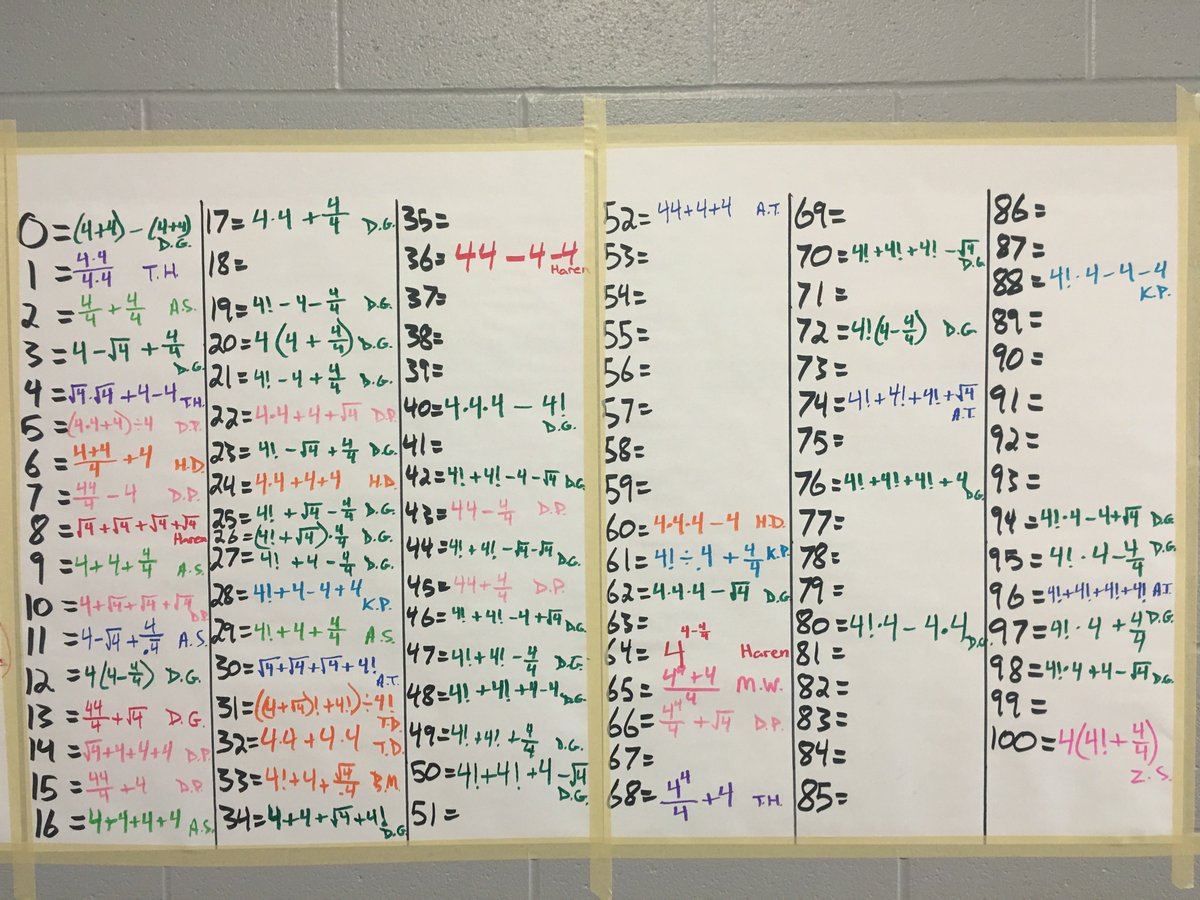 0 = (4+4) - (4+4) D.G.
1 = 4·4/4·4 T.H.
2 = 4/4 + 4/4 A.S.
3 = 4 - √4 + 4/4 D.G.
4 = √4·√4 + 4 - 4 T.H.
5 = (4·4+4) ÷ 4 D.P.
6 = 4+4/4 + 4 H.D.
7 = 44/4 - 4 D.P.
8 = √4 + √4 + √4 + √4 Haren
9 = 4 + 4 + 4/4 A.S.
10 = 4 + √4 + √4 + √4 D.P.
11 = 4 - √4 + 4/.4 A.S.
12 = 4(4 - 4/4) D.G.
13 = 44/4 + √4 D.G.
14 = √4 + 4 + 4 + 4 D.P.
15 = 44/4 + 4 D.P.
16 = 4+4+4+4 A.S.
17 = 4·4 + 4/4 D.G.
18 =
19 = 4! - 4 - 4/4 D.G.
20 = 4(4 + 4/4) D.G.
21 = 4! - 4 + 4/4 D.G.
22 = 4·4 + 4 + √4 D.P.
23 = 4! - √4 + 4/4 D.G.
24 = 4·4 + 4 + 4 H.D.
25 = 4! + √4 - 4/4 D.G.
26 = (4! + √4)·4/4 D.G.
27 = 4! + 4 - 4/4 D.G.
28 = 4! + 4 - 4 + 4 K.P.
29 = 4! + 4 + 4/4 A.S.
30 = √4 + √4 + √4 + 4! A.T.
31 = ((4+√4)! + 4!) ÷ 4! T.D.
32 = 4·4 + 4·4 T.D.
33 = 4! + 4 + √4/.4 B.M.
34 = 4 + 4 + √4 + 4! D.G.
35 =
36 = 44 - 4 - 4 Haren
37 =
38 =
39 =
40 = 4·4·4 - 4! D.G.
41 =
42 = 4! + 4! - 4 - √4 D.G.
43 = 44 - 4/4 D.P.
44 = 4! + 4! - √4 - √4 D.G.
45 = 44 + 4/4 D.P.
46 = 4! + 4! - 4 + √4 D.G.
47 = 4! + 4! - 4/4 D.G.
48 = 4! + 4! + 4 - 4 D.G.
49 = 4! + 4! + 4/4 D.G.
50 = 4! + 4! + 4 - √4 D.G.
51 =
52 = 44 + 4 + 4 A.T.
53 =
54 =
55 =
56 =
57 =
58 =
59 =
60 = 4·4·4 - 4 H.D.
61 = 4! ÷ .4 + 4/4 K.P.
62 = 4·4·4 - √4 D.G.
63 =
64 = 4^(4 - 4/4) Haren
65 = 4^4 + 4/4 M.W.
66 = 4^4/4 + √4 D.P.
67 =
68 = 4^4/4 + 4 T.H.
69 =
70 = 4! + 4! + 4! - √4 D.G.
71 =
72 = 4!(4 - 4/4) D.G.
73 =
74 = 4! + 4! + 4! + √4 A.T.
75 =
76 = 4! + 4! + 4! + 4 D.G.
77 =
78 =
79 =
80 = 4!·4 - 4·4 D.G.
81 =
82 =
83 =
84 =
85 =
86 =
87 =
88 = 4!·4 - 4 - 4 K.P.
89 =
90 =
91 =
92 =
93 =
94 = 4!·4 - 4 + √4 D.G.
95 = 4!·4 - 4/4 D.G.
96 = 4! + 4! + 4! + 4! A.T.
97 = 4!·4 + 4/4 D.G.
98 = 4!·4 + 4 - √4 D.G.
99 =
100 = 4(4! + 4/4) Z.S.